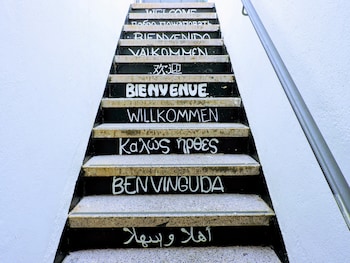 WELCOME
добро пожаловать
BIENVENIDO
VALKOMMEN
欢迎
BIENVENUE
WILLKOMMEN
Καλώς ήρθες
BENVINGUDA
أهلا وسهلا